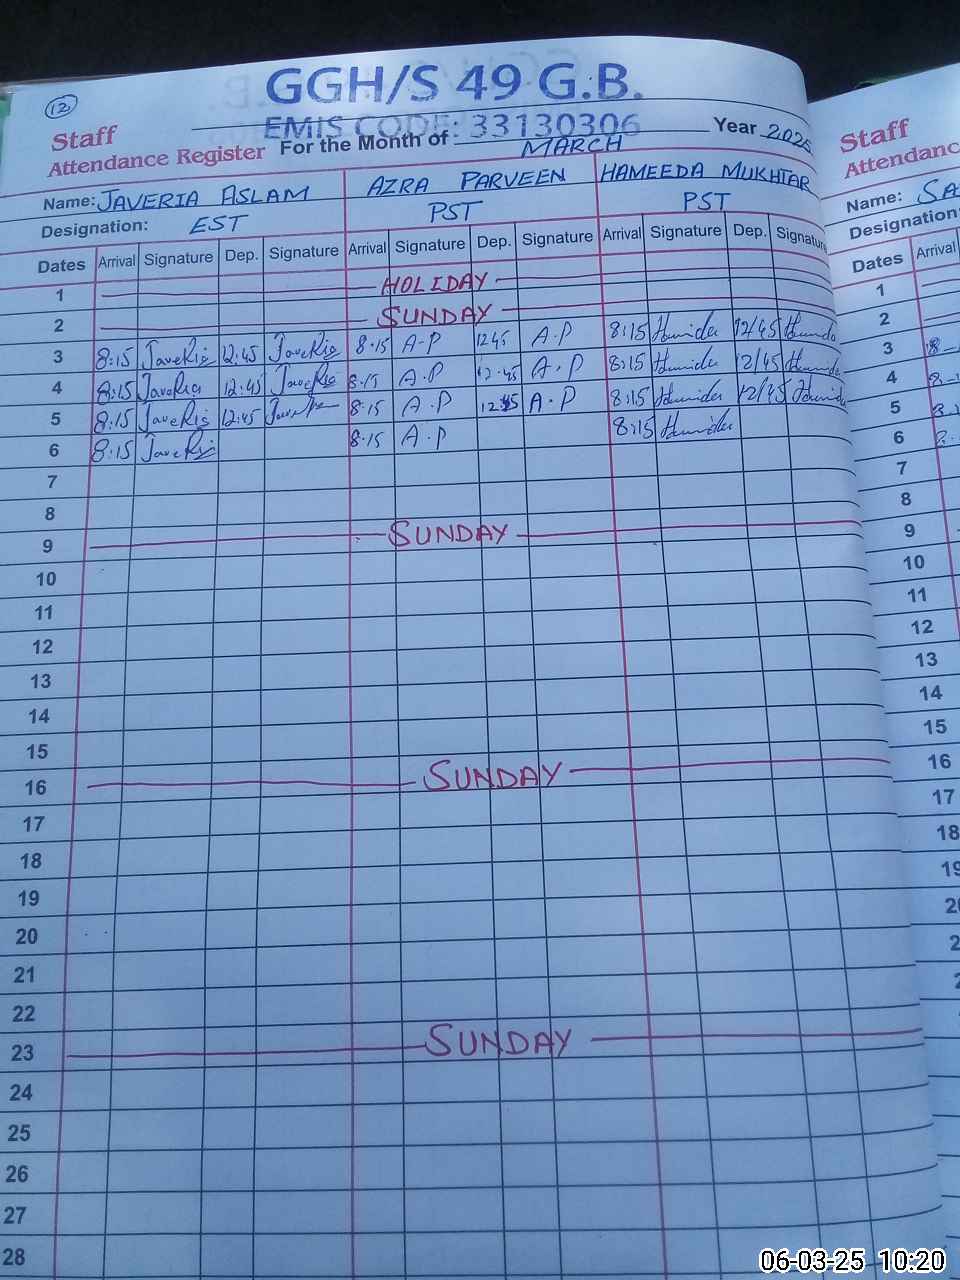 12
GGH/S 49 G.B.
EMIS CODE: 33130306
Staff
Attendance Register For the Month of MARCH Year 2025
Name: JAVERIA ASLAM AZRA PARVEEN HAMEEDA MUKHTAR
Designation: EST PST PST
Dates Arrival Signature Dep. Signature Arrival Signature Dep. Signature Arrival Signature Dep. Signature
1 HOLIDAY
2 SUNDAY
3 8:15 Javeria 12:45 Javeria 8·15 A·P 1245 A.P 8:15 12/45
4 8:15 Javeria 12:45 Javeria 8·15 A.P 12·45 A.P 8:15 12/45
5 8:15 Javeria 12:45 8·15 A.P 1245 A·P 8:15 12/45
6 8:15 Javeria 8·15 A·P 8:15
7
8
9 SUNDAY
10
11
12
13
14
15
16 SUNDAY
17
18
19
20
21
22
23 SUNDAY
24
25
26
27
28
Staff
Attendanc
Name: SA
Designation
Dates Arrival
1
2
3 8-
4 8-
5
6
7
8
9
10
11
12
13
14
15
16
17
18
19
06-03-25 10:20